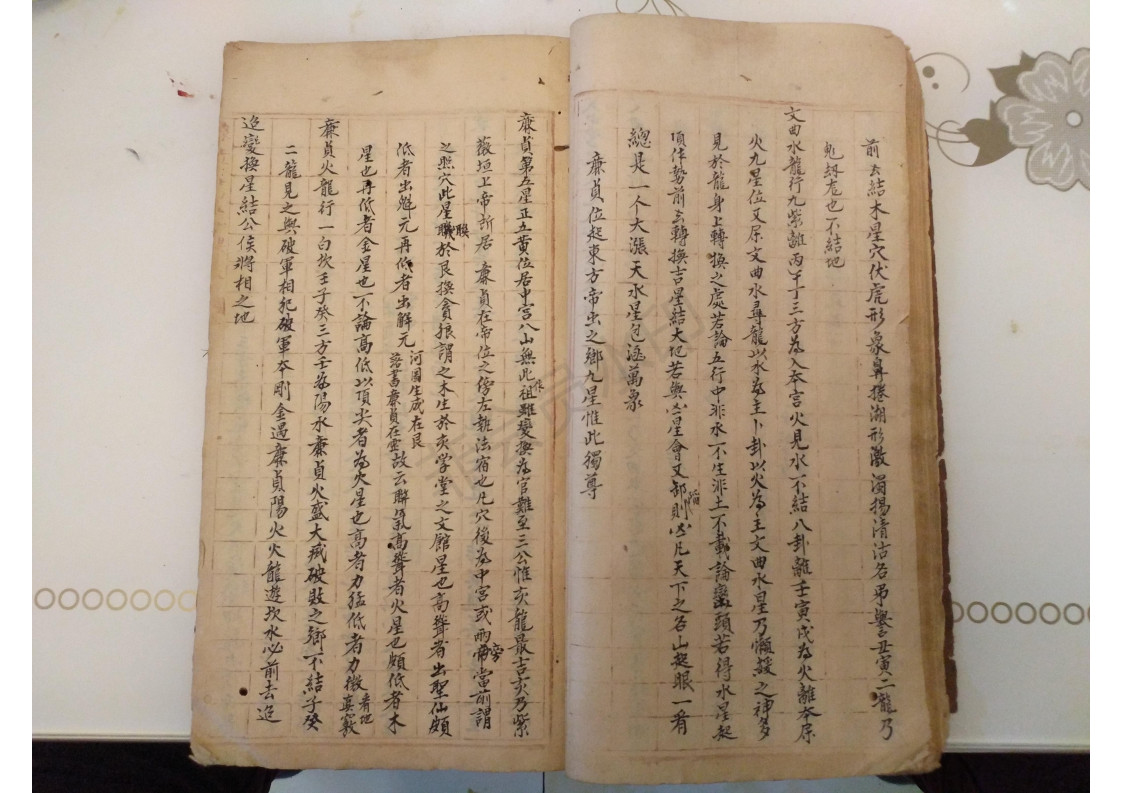 前去結木星穴伏虎形象鼻捲湖形激濁揚清沽名弔譽丑寅二龍乃
鬼刼龙也不結地
文曲水龍行九紫離丙午丁三方為入本宫火見水不結八卦離壬寅戌為火離本屬
火九星位又屬文曲水尋龍以水為主卜卦以火為主文曲水星乃懶緩之神多
見於龍身上轉換之處若論五行中非水不生非土不載論巒頭若得水星起
項体勢前去轉換吉星結大地若無凶星會又卸則凶凡天下之名山起眼一看
總是一个大漲天水星包涵萬象
廉貞位起東方帝出之鄉九星惟此獨尊
廉貞第五星正五黄位居中宫八山無此祖雖變換為官難至三公惟亥龍最吉亥乃紫
薇垣上帝所居廉貞在帝位之傍左執法宿也凡穴後為中宫或兩旁當前謂
之照穴此星職於艮換貪狼謂之木生於亥学堂之文館星也高聳者出聖仙頗
低者出魁元再低者出解元 河圖生成在艮
洛書廉貞在 故云聯氣高聳者火星也頗低者木
星也再低者金星也不論高低以頂尖者為火星也高者力猛低者力微 看地
真竅
廉貞火龍行一白坎壬子癸三方壬為陽水廉貞火盛大咸破敗之鄉不結子癸
二龍見之無破軍相犯破軍本剛金遇廉貞陽火火龍遊坎水必前去迢
迢變換星結公侯將相之地